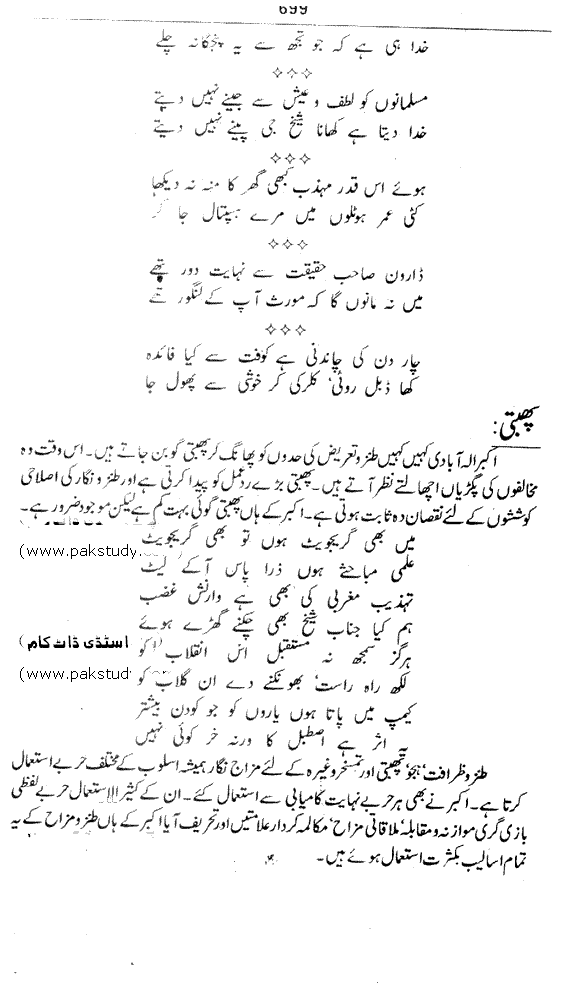 699
خدا ہی ہے کہ جو تجھ سے یہ پنجگانہ چلے
مسلمانوں کو لطف و عیش سے جینے نہیں دیتے
خدا دیتا ہے کھانا شیخ جی پینے نہیں دیتے
ہوئے اس قدر مہذب کبھی گھر کا منہ نہ دیکھا
کٹی عمر ہوٹلوں میں مرے ہسپتال جا کر
ڈارون صاحب حقیقت سے نہایت دور تھے
میں نہ مانوں گا کہ مورث آپ کے لنگور تھے
چار دن کی چاندنی ہے کوفت سے کیا فائدہ
کھا ڈبل روٹی' کلرکی کر خوشی سے پھول جا
پھبتی:
اکبر الہ آبادی کہیں کہیں طنز و تعریض کی حدوں کو پھانگ کر پھبتی گو بن جاتے ہیں۔ اس وقت وہ
مخالفوں کی پگڑیاں اچھالتے نظر آتے ہیں۔ پھبتی بڑے ردعمل کو پیدا کرتی ہے اور طنز و نگار کی اصلاحی
کوششوں کے لئے نقصان دہ ثابت ہوتی ہے۔ اکبر کے ہاں پھبتی گوئی بہت کم ہے لیکن موجود ضرور ہے۔
میں بھی گریجویٹ ہوں تو بھی گریجویٹ
(www.pakstudy.
علمی مباحثے ہوں ذرا پاس آکے لیٹ
تہذیب مغربی کی بھی ہے وارنش غضب
ہم کیا جناب شیخ بھی چکنے گھڑے ہوئے
ہرگز سمجھ نہ مستقبل اس انقلاب کو
اسٹڈی ڈاٹ کام )
لکھ راہ راست' بھونکنے دے ان گلاب کو
(www.pakstudy.
کیمپ میں پاتا ہوں یاروں کو جو کودن بیشتر
یہ اثر ہے اصطبل کا ورنہ خر کوئی نہیں
طنز و ظرافت' ہجو' پھبتی اور تمسخر وغیرہ کے لئے مزاح نگار ہمیشہ اسلوب کے مختلف حربے استعمال
کرتا ہے۔ اکبر نے بھی ہر حربے نہایت کامیابی سے استعمال کئے۔ ان کے کثیر الاستعمال حربے لفظی
بازی گری موازنہ و مقابلہ' ملاقاتی مزاح' مکالمہ کردار علامتیں اور تحریف آیا اکبر کے ہاں طنز و مزاح کے یہ
تمام اسالیب بکثرت استعمال ہوئے ہیں۔